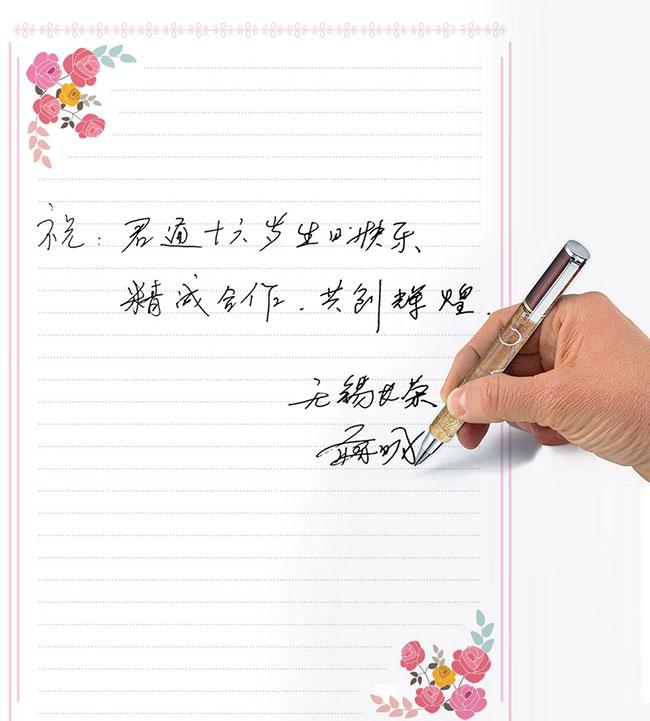 祝：君道十六岁生日快乐、
精成合作、共创辉煌.
无锡 荣